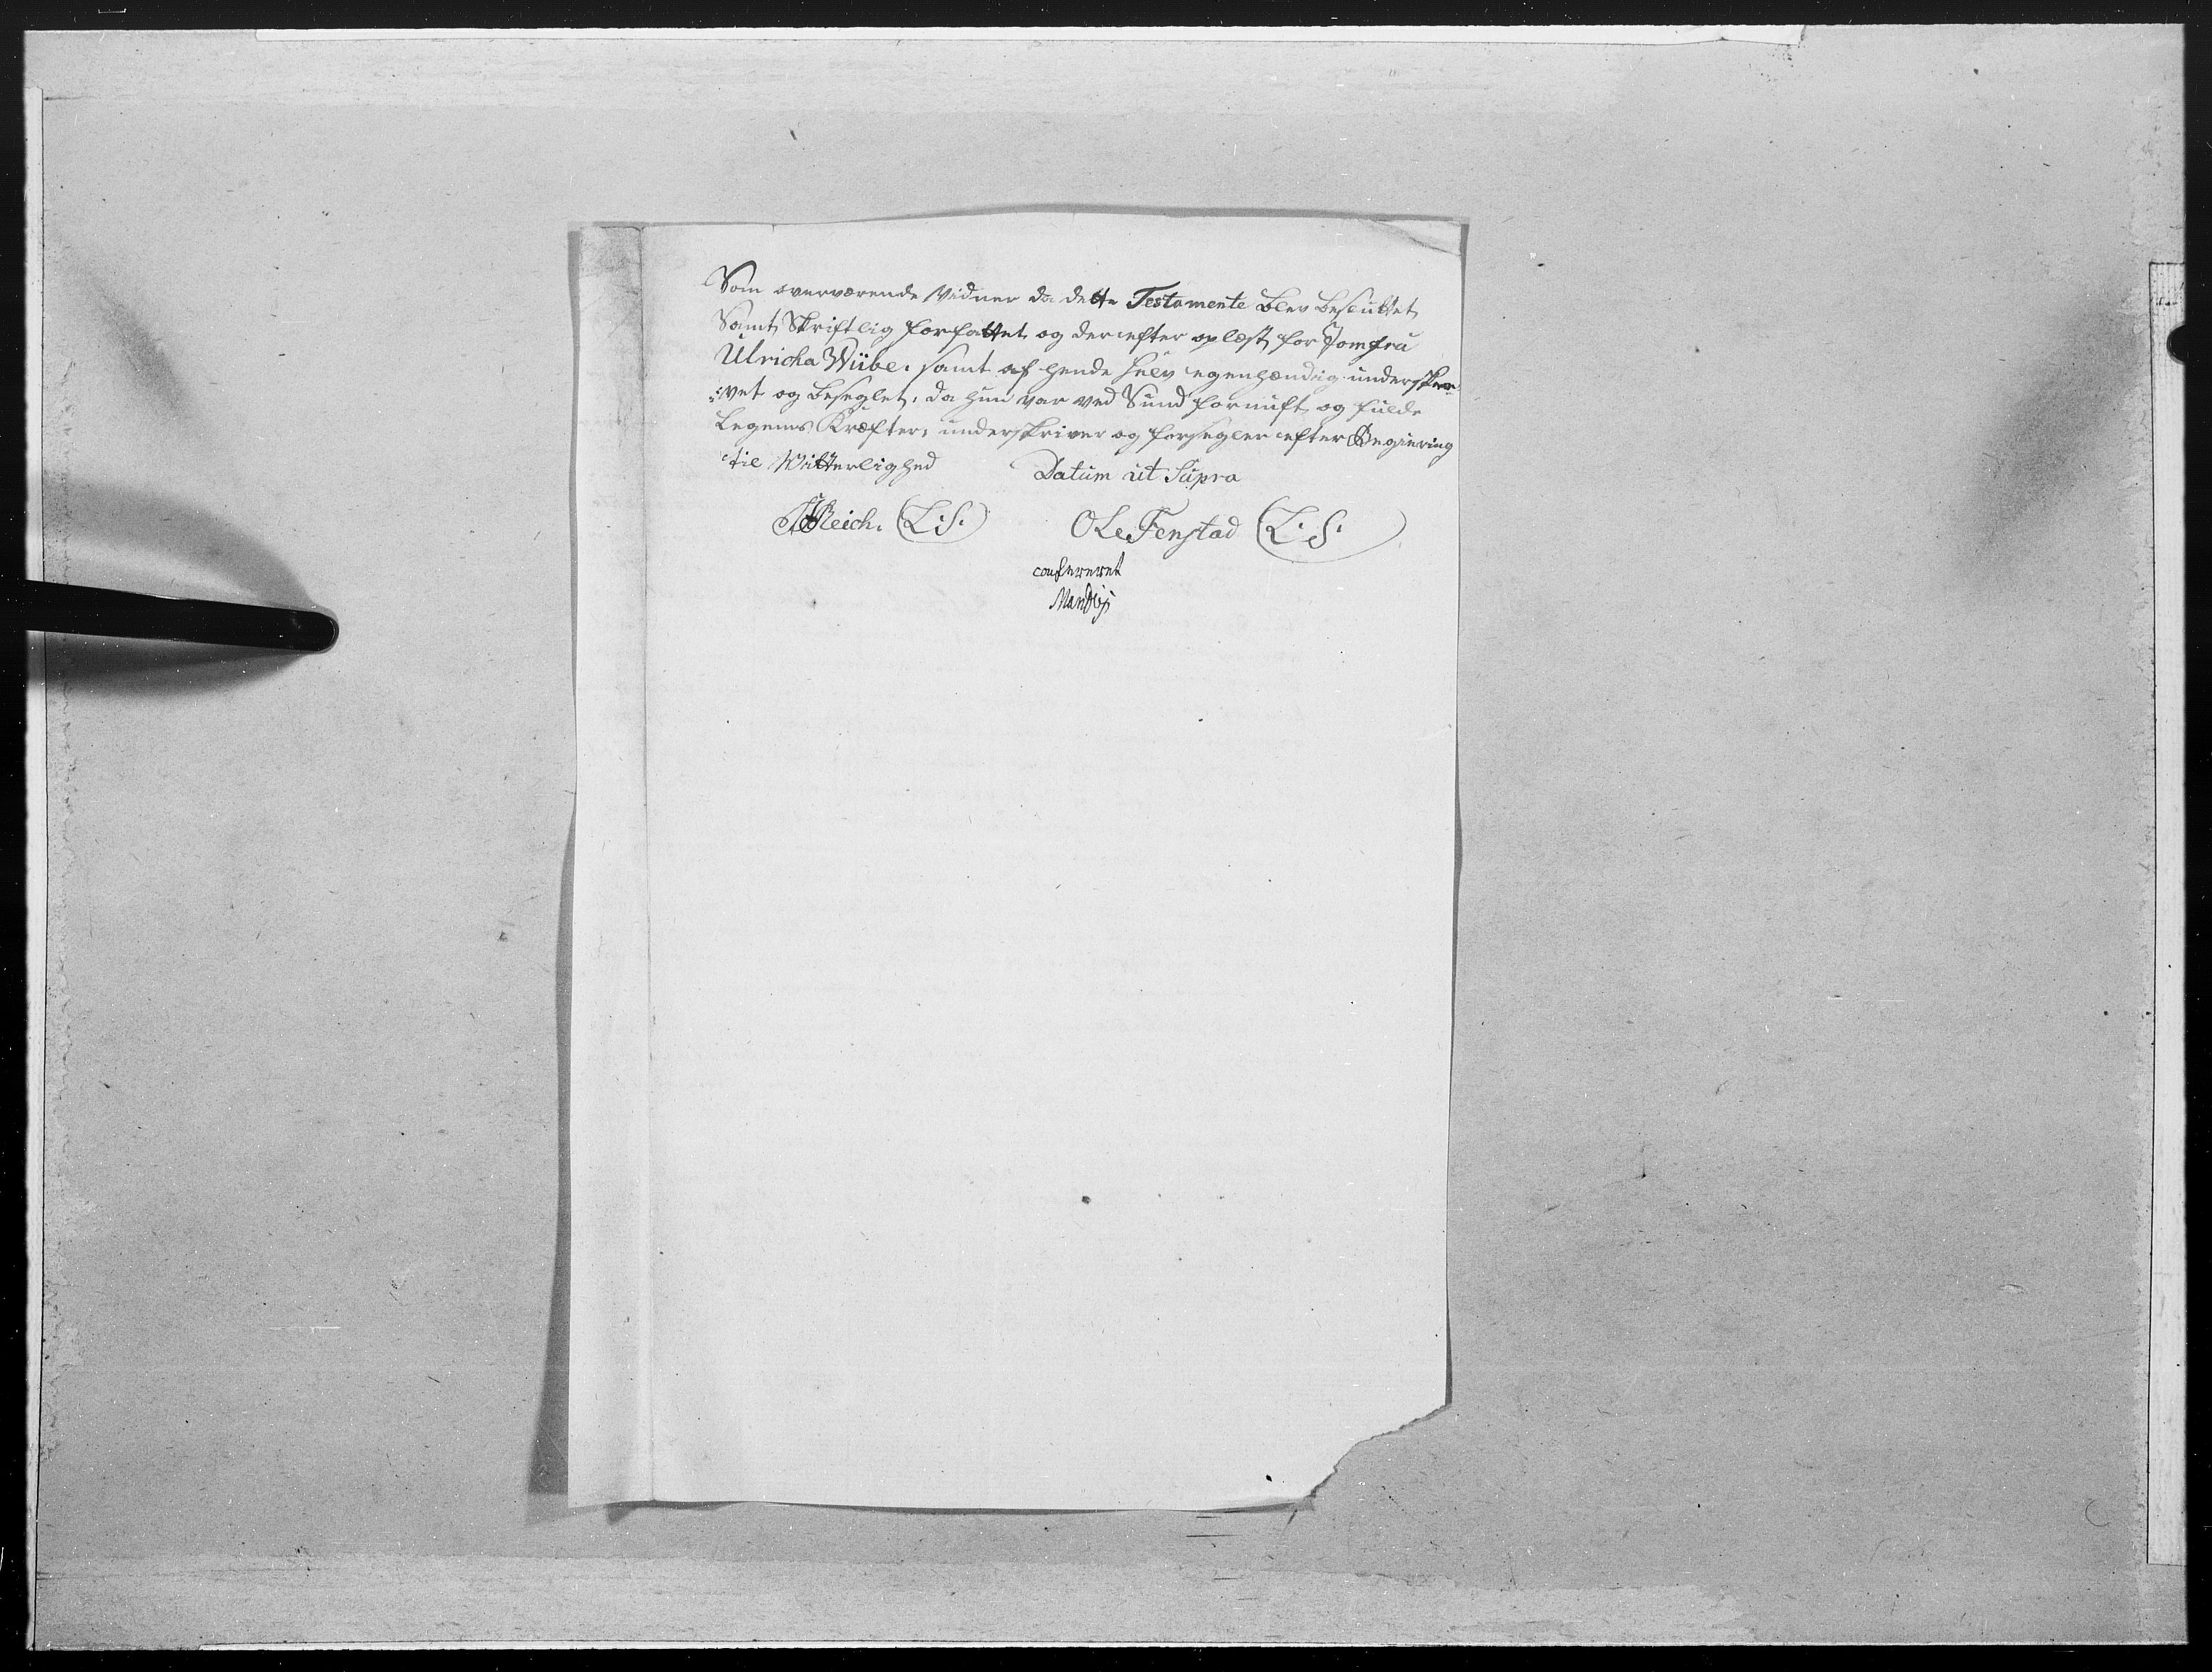 Som overværende Vidner da dette Testamente blev besluttet
Samt Skriftlig forfattet og derefter oplæst for Jomfru
Ulricha Wübe. samt af hende selv egenhændig undersk
vet og beseglet, da hun var ved Sund fornuft og fulde
Legems Kræfter, underskriver og forsegler efter Begiering
til Witterlighed Datum ut Supra
Reich. (L:S.) Ole Fenstad (L:S.)
confereret